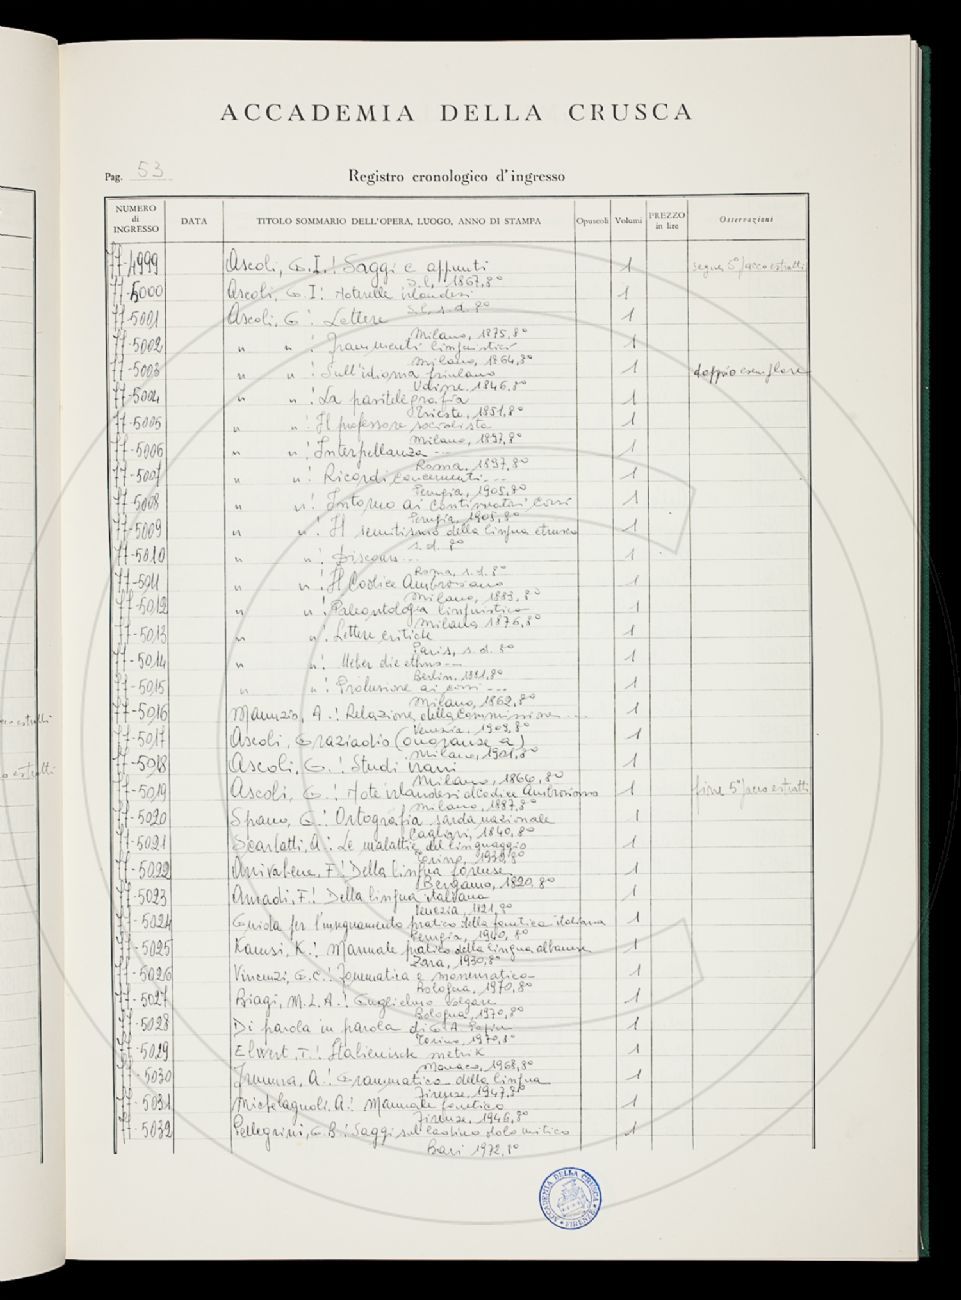 ACCADEMIA DELLA CRUSCA
Pag. 53
Registro cronologico d'ingresso
NUMERO di INGRESSO DATA TITOLO SOMMARIO DELL'OPERA, LUOGO, ANNO DI STAMPA Opuscoli Volumi PREZZO in lire Osservazioni
77-4999 Ascoli, G.I.: Saggi e appunti 1 segue 5° acco estratti
S.l., 1867, 8°
77-5000 Ascoli, G.I.: Noterelle irlandesi 1
S.l., s.d. 8°
77-5001 Ascoli, G.: Lettere 1
Milano, 1875, 8°
77-5002 " " : Frammenti linguistici 1
Milano, 1864, 8°
77-5003 " " : Sull'idioma friulano 1 doppio esemplare
Udine, 1846, 8°
77-5004 " " : La pasitelegrafia 1
Trieste, 1851, 8°
77-5005 " " : Il professore socialista 1
Milano, 1897, 8°
77-5006 " " : Interpellanza ... 1
Roma, 1897, 8°
77-5007 " " : Ricordi concernenti ... 1
Perugia, 1905, 8°
77-5008 " " : Intorno ai continuatori corsi 1
Perugia, 1905, 8°
77-5009 " " : Il semitismo della lingua etrusca 1
s.d. 8°
77-5010 " " : Discorso ... 1
Roma, s.d. 8°
77-5011 " " : Il Codice Ambrosiano 1
Milano, 1883, 8°
77-5012 " " : Paleontologia linguistica 1
Milano 1876, 8°
77-5013 " " : Lettere critiche 1
Paris, s.d. 8°
77-5014 " " : Ueber die ethno... 1
Berlin, 8°
77-5015 " " : Prolusione ai corsi ... 1
Milano, 1862, 8°
77-5016 Maurizio, A.: Relazione della Commissione ... 1
Venezia, 1909, 8°
77-5017 Ascoli, Graziadio (onoranze a) 1
Milano, 1901, 8°
77-5018 Ascoli, G.: Studi irani 1
Milano, 1866, 8°
77-5019 Ascoli, G.: Note irlandesi al Codice Ambrosiano 1 fine 5° acco estratti
Milano, 1887, 8°
77-5020 Spano, G.: Ortografia sarda nazionale 1
Cagliari, 1840, 8°
77-5021 Scarlatti, A.: Le malattie del linguaggio 1
Torino, 8°
77-5022 Arrivabene, F.: Della lingua forense 1
Bergamo, 1820, 8°
77-5023 Amadi, F.: Della lingua italiana 1
Venezia, 1821, 8°
77-5024 Guida per l'insegnamento pratico della fonetica italiana 1
Perugia, 1940, 8°
77-5025 K.: Manuale pratico della lingua albanese 1
Zara, 1930, 8°
77-5026 Vincenzi, G.C.: Fonematica e monematica 1
Bologna, 1970, 8°
77-5027 Biagi, M.L.A.: Guglielmo Volgare 1
Bologna, 1970, 8°
77-5028 Di parola in parola di G.A. Papini 1
Torino, 1970, 8°
77-5029 Elwert, T.: Italienische metrik 1
Monaco, 1968, 8°
77-5030 A.: Grammatica della lingua 1
Firenze, 1947, 8°
77-5031 Michelagnoli, A.: Manuale fonetico 1
Firenze, 1946, 8°
77-5032 Pellegrini, G.B.: Saggi sul ladino dolomitico 1
Bari 1972, 8°
ACCADEMIA DELLA CRUSCA FIRENZE